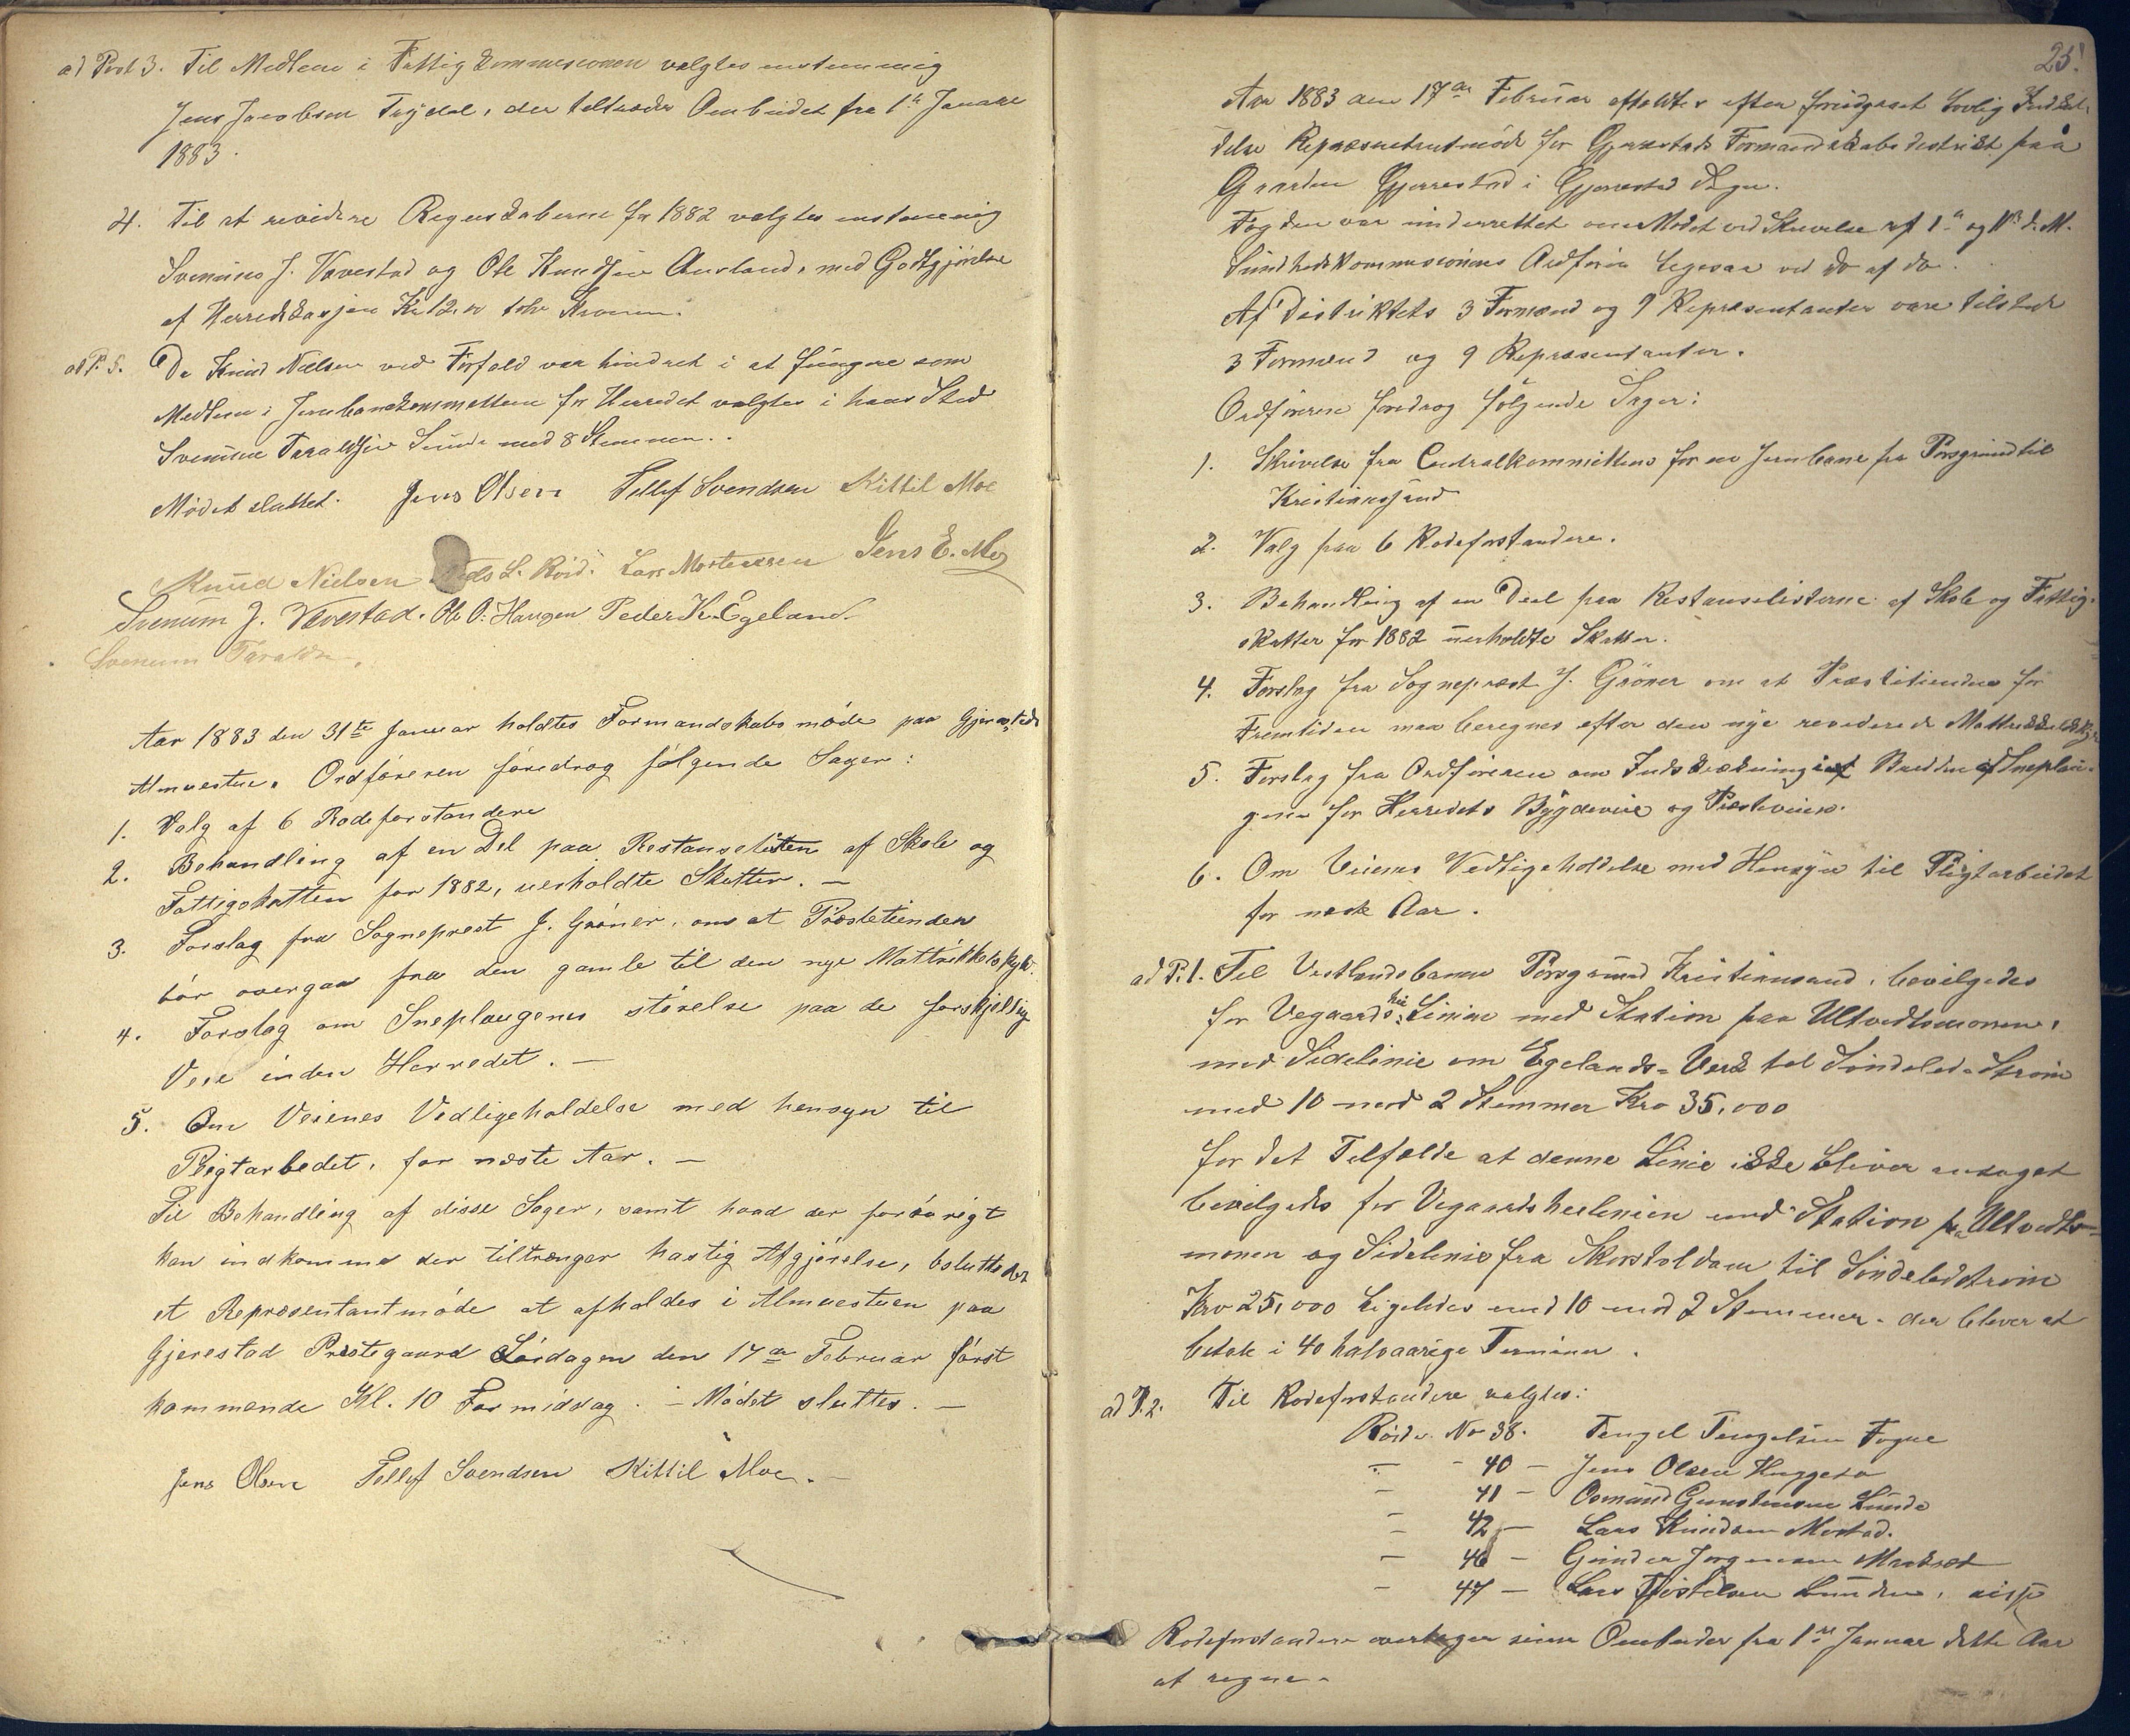 ad Post 3. Til Medlem i Fattigkommissionen valgtes enstemmig
Jens Jacobsen Trydal, der tiltræder Ombudet fra 1ste Januar
1883.
4. Til at revidere Regnskaberne for 1882 valgtes enstemmig
Svenum J. Vævestad og Ole Knudsen Ausland, med Godtgjørelse
af Herredskassen Kr 12.00 tolv Kroner.
ad P. 5. Da Knud Nielsen ved Forfald var hindret i at fungere som
Medlem i Jernbanekommitteen for Herredet valgtes i hans Sted
Svenum Taraldsen Sunde med 8 Stemmer.
Mødet sluttet. Jens Olsen Tellef Svendsen Kittil Moe
Knud Nielsen Niels L. Röid. Lars Mortensen Jens E. Moe
Svenum J. Vævestad. Ole O. Haugen Peder K. Egeland.
Svenum Taralds.
Aar 1883 den 31te Januar holdtes Formandskabsmøde paa Gjerestads
Almuestue. Ordføreren foredrog følgende Sager:
1. Valg af 6 Rodeforstandere
2. Behandling af en Del paa Restanselisten af Skole og
Fattigskatten for 1882, uerholdte Skatter. —
3. Forslag fra Sogneprest J. Grøner, om at Præstetienden
bør overgaa fra den gamle til den nye Mattrikkelskyld.
4. Forslag om Sneplougenes størelse paa de forskjellige
Veie inden Herredet. —
5. Om Veienes Vedligeholdelse med hensyn til
Pligtarbedet, for næste Aar. —
Til Behandling af disse Sager, samt hvad der forøvrigt
kan indkomme der tiltrænger hastig Afgjørelse, besluttedes
et Repræsentantmøde at afholdes i Almuestuen paa
Gjerestad Prestegaard Lørdagen den 17de Februar først
kommende Kl. 10 Formiddag. — Mødet sluttes. —
Jens Olsen Tellef Svendsen Kittil Moe. —
25.
Aar 1883 den 17de Februar afholdtes efter foregaaet lovlig Indkal-
delse Repræsentantmøde for Gjerestads Formandskabsdistrikt paa
Gaarden Gjerrestad i Gjerrestad Sogn.
Fogden var underrettet om Mødet ved Skrivelse af 1ste og d. M.
Sundhedskommissionens Ordfører ligesaa ved do af do.
Af Distriktets 3 Formænd og 9 Repræsentanter vare tilstede
3 Formænd og 9 Repræsentanter.
Ordføreren foredrog følgende Sager:
1. Skrivelse fra Centralkommitteens for en Jernbane fra Porsgrund til
Kristianssand
2. Valg paa 6 Rodeforstandere.
3. Behandling af en Deel paa Restanselisterne af Skole og Fattig-
skatter for 1882 uerholdte Skatter.
4. Forslag fra Sogneprest J. Grøner om at Præstetienden for
Fremtiden maa beregnes efter den nye reviderede Matrikkelskyld
5. Forslag fra Ordføreren om Indskrækning af Bredden af Sneplou-
gene for Herredets Bygdeveie og Præsteveien.
6. Om Veienes Vedligeholdelse med Hensyn til Pligtarbeidet
for næste Aar.
ad P. 1. Til Vestlandsbanen Porsgrund Kristiansand, bevilgedes
for Vegaardsheilinien med Station paa Ultvedtsmonen,
med Sidelinie om Egelands-Verk til Søndeled-Strøm
med 10 mod 2 Stemmer Kro 35,000
for det Tilfælde at denne Linie ikke bliver antaget
bevilgedes for Vegaardsheilinien med Station paa Ultvedts-
monen og Sidelinie fra Skorstoldam til Søndeledstrøm
Kro 25,000 ligeledes med 10 mod 2 Stemmer. der bliver at
betale i 40 halvaarige Terminer.
ad P. 2. Til Rodeforstandere valgtes:
Rode No 38. Tengel Tengelsen Fogne
— - 40 — Jens Olsen Huggeto
— 41 — Osmund Gunstensen Lunde
— 42 — Lars Knudsen Mostad.
— 46 — Gunder Jørgensen
— 47 — Lars Tjøstelsen Lunden, disse
Rodeforstandere overtager sine Ombuder fra 1ste Januar dette Aar
at regne.